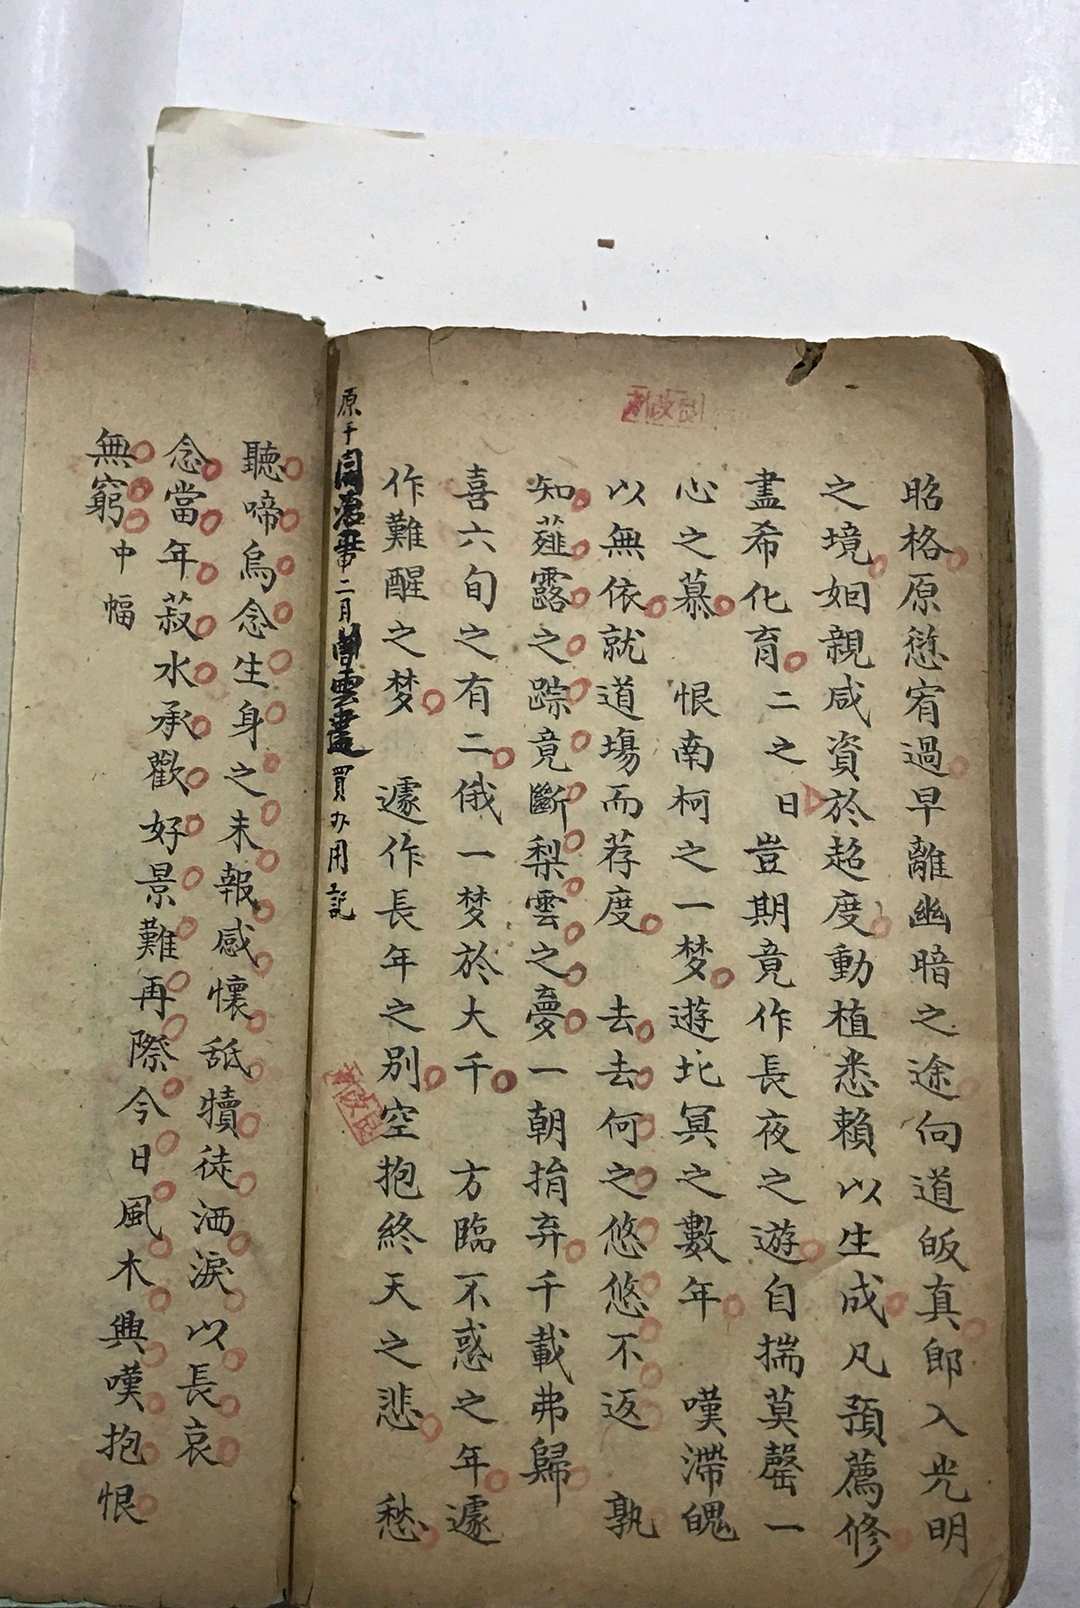 昭格原愆宥過早離幽暗之途向道皈真郎入光明
之境姻親咸資於超度動植悉賴以生成凡預薦修
盡希化育二之日豈期竟作長夜之遊自揣莫罄一
心之慕恨南柯之一梦遊北冥之數年嘆滯魄
以無依就道場而荐度去去何之悠悠不返孰
知薤露之踪竟斷梨雲之夣一朝捐弃千載弗歸
喜六旬之有二俄一梦於大千方臨不惑之年遽
作難醒之梦遽作長年之别空抱終天之悲愁
原于二月雲買办用記
聽啼烏念生身之未報感懷舐犢徒洒淚以長哀
念當年菽水承歡好景難再際今日風木興嘆抱恨
無窮中幅